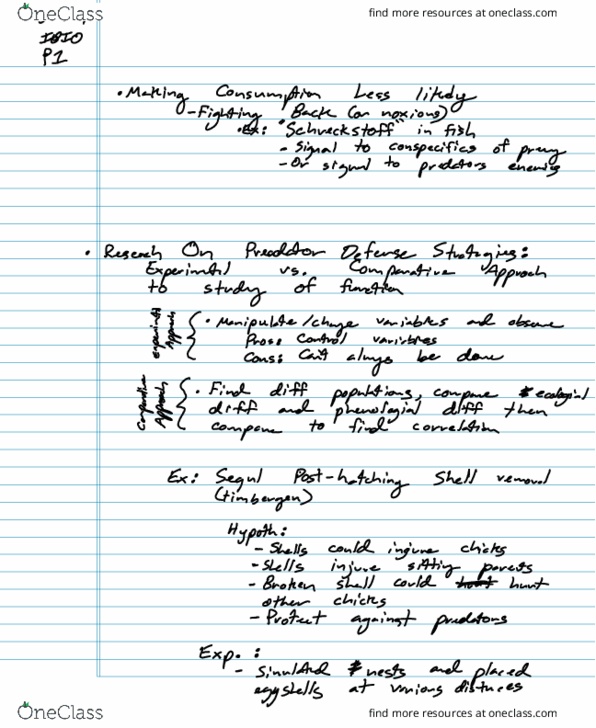 OneClass
find more resources at oneclass.com
IBIO
P1
• Making Consumption Less likely
- Fighting Back (or noxious)
• Ex: "Schreckstoff" in fish
- Signal to conspecifics of prey
- Or signal to predators enemies
• Research On Preadator Defense Strategies:
Experimental vs. Comparative Approach
to study of function
Experimental Approach
• Manipulate/change variables and observe
Pros: Control variables
Cons: Can't always be done
Comparative Approach
• Find diff populations, compare ecological
diff and phenological diff then
compare to find correlation
Ex: Segul Post-hatching Shell removal
(timbergen)
Hypoth:
- Shells could injure chicks
- Shells injure sitting parents
- Broken shell could hunt
other chicks
- Protect against predators
Exp. :
- Simulated nests and placed
eggshells at various distances
OneClass
find more resources at oneclass.com